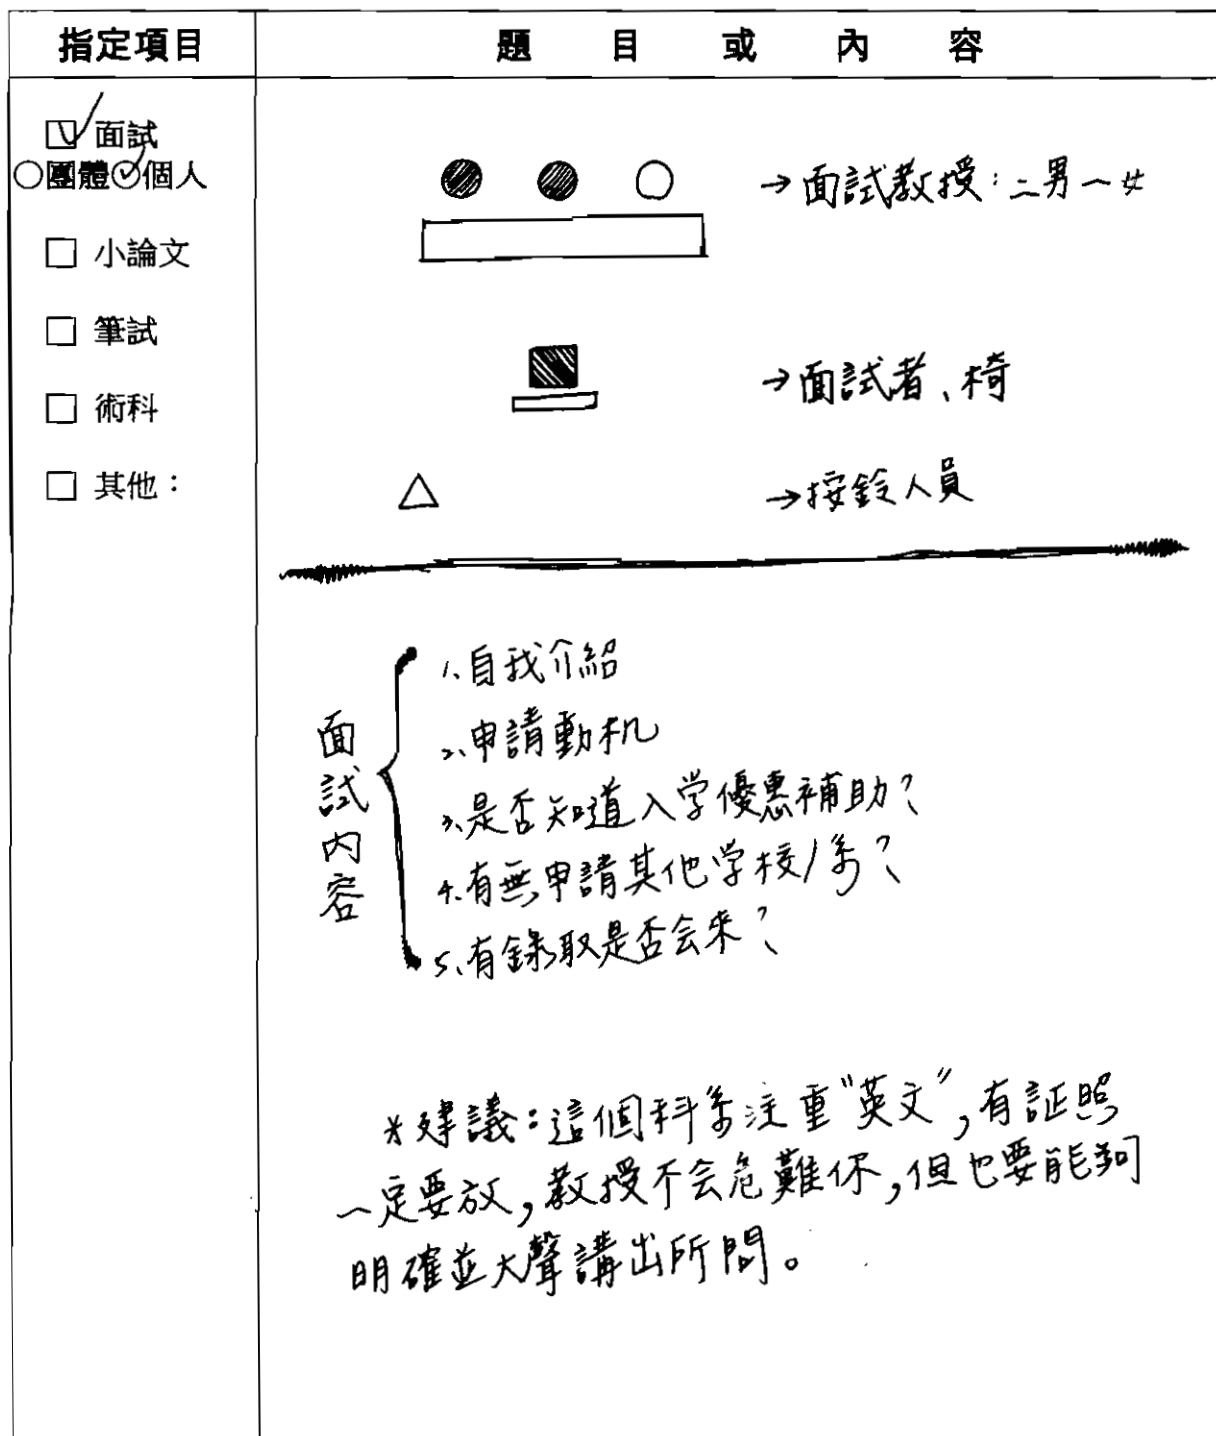 指定項目
題目或內容
面試
團體 個人
小論文
筆試
術科
其他：
→面試教授：二男一女
→面試者、椅
→按鈴人員
面試內容
1.自我介紹
2.申請動机
3.是否知道入学優惠補助？
4.有無申請其他学校/系？
5.有錄取是否会來？
*建議：這個科系注重"英文"，有証照
一定要放，教授不会危難你，但也要能夠
明確並大聲講出所問。